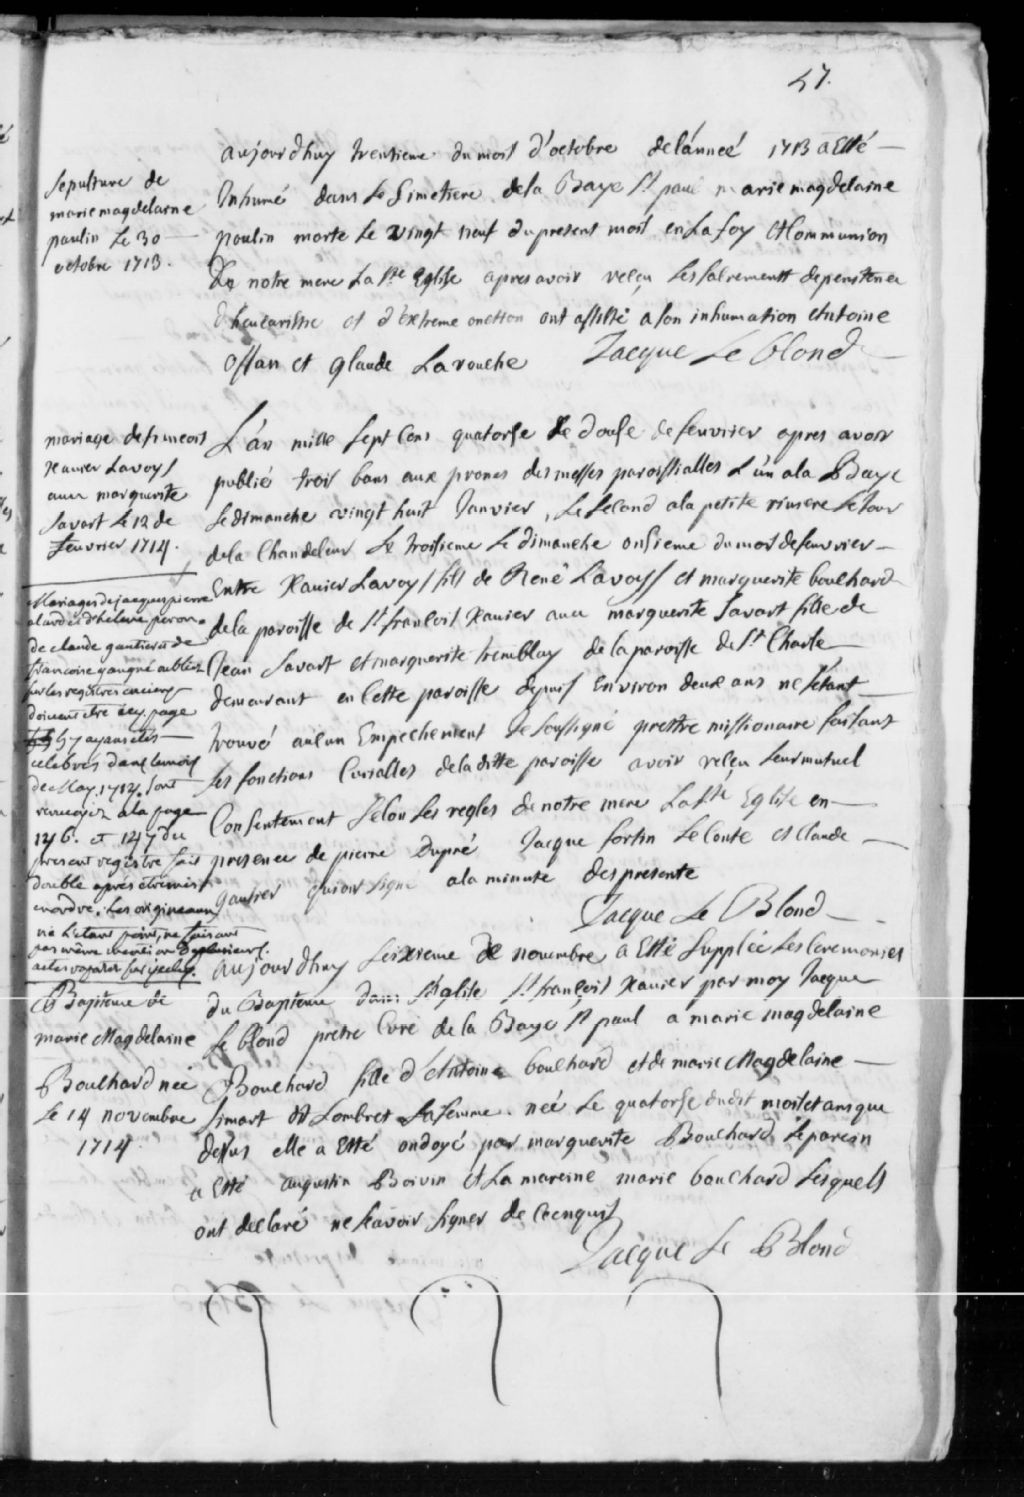 57.
Sepulture de
marie magdelaine
poulin Le 30
octobre 1713.
aujourdhuy trentieme du mois d'octobre de l'anneé 1713 a Etté
Inhumé dans Le Simetiere de la Baye St paul marie magdelaine
poulin morte Le vingt neuf du present mois en La foy et Communion
De notre mere La Ste Eglise apres avoir reçeu Les sacrements de penitence
d'heucaristie et d'extreme onction ont assisté a son inhumation Antoine
et glaude Larouche Jacque Le Blond
mariage de francois
Xauier Lavoys
auec marguerite
Savart Le 12 de
feurier 1714.
L'an mille Sept Cens quatorse Le douse de feuvrier apres avoir
publié trois bans aux prones des messes paroissialles L'un a la Baye
Le dimanche vingt huit Janvier, Le Second a la petite riviere Le Jour
de la Chandeleur Le troisieme Le dimanche onsieme du mois de feuvrier
Entre Xauier Lavoys fils de René Lavoys et marguerite bouchard
de la paroisse de St françois Xauier auec marguerite Savart fille de
Jean Savart et marguerite tremblay de la paroisse de St Charle
demeurant en Cette paroisse depuis Environ deux ans ne s'etant
trouvé aucun Empechement Je soussigné prettre missionaire faisant
Les fonctions Curialles de la ditte paroisse avoir reçeu Leur mutuel
Consentement Selon Les regles de notre mere La Ste Eglise en
presence de pierre Dupré Jacque fortin Le Conte et Claude
gautier qui ont signé a la minute des presente
Jacque Le Blond
Mariages de jacques pierre
alard et d'helene peron.
de claude gautier et de
francoise gaugné oublies
sur les registres anciens
doivent etre icy page
57 ayans etés
celebrés dans le mois
de May 1712. sont
renvoyez a la page
146. et 147 du
present registre fait
double apres etre mis
en ordre. Les origineaux
ne l'etant point, ne faisant
pas même mention de plusieurs
actes
Bapteme de
marie Magdelaine
Bouchard neé
Le 14 novembre
1714
aujourdhuy Seixieme de novembre a Etté Suppléé Les Ceremonies
du Bapteme dans l'Eglise St françois Xauier par moy Jacque
Le blond prettre Curé de la Baye St paul a marie magdelaine
Bouchard fille d'Antoine bouchard et de marie Magdelaine
Simart dit Lombret Sa femme. neé Le quatorse dudit mois et an que
dessus elle a Etté ondoyé par marguerite Bouchard, Le parain
a Etté augustin Boivin et La mareine marie bouchard Lesquels
ont declaré ne sçavoir signer de ce enquis
Jacque Le Blond